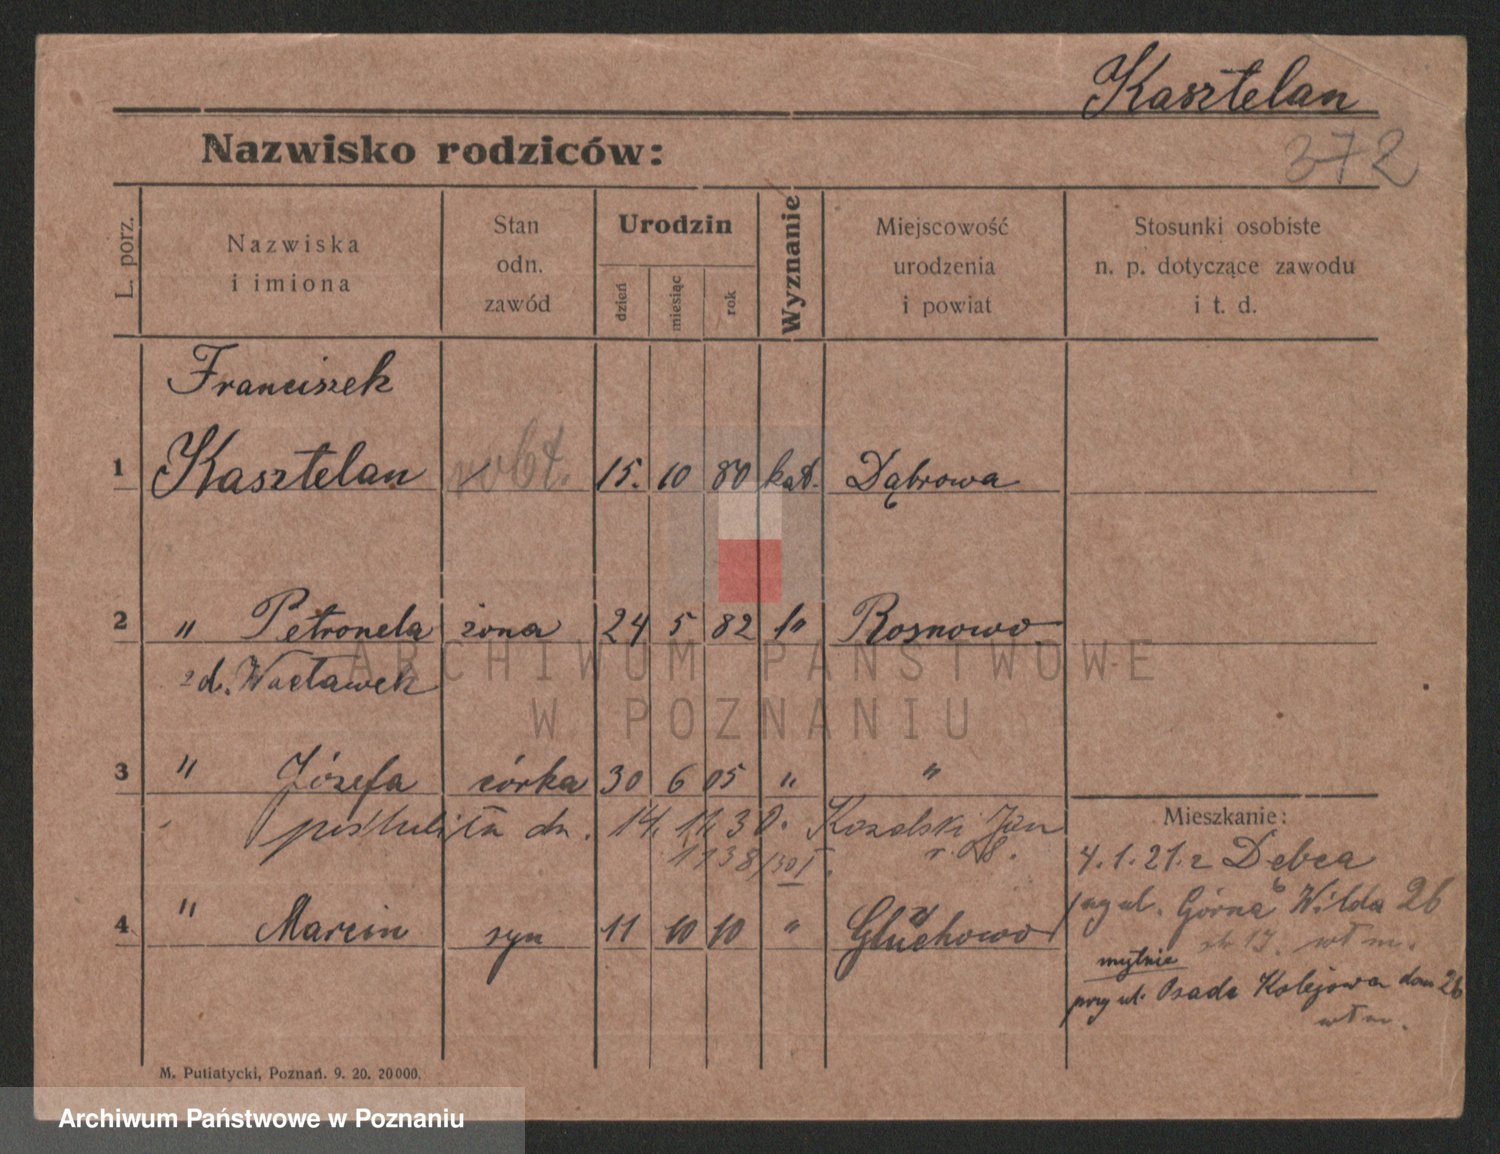 Kasztelan
372
Nazwisko rodziców:
L. porz.
Nazwiska
i imiona
Stan
odn.
zawód
Urodzin
dzień
miesiąc
rok
Wyznanie
Miejscowość
urodzenia
i powiat
Stosunki osobiste
n. p. dotyczące zawodu
i t. d.
Franciszek
1 Kasztelan robt. 15. 10 80 kat. Dąbrowa
2 " Petronela żona 24 5 82 " Rosnowo
zd. Wacławek
3 " Józefa córka 30 6 05 " "
poślubiła dn. 14. 11. 30. Kozalski Jan
1138/30
4 " Marcin syn 11 10 10 " Głuchowo
Mieszkanie:
4.1.21. z Dębca
przy ul. Górna Wilda 26
wł m.
mylnie
przy ul. Osada Kolejowa dom 26
wł m.
M. Putiatycki, Poznań. 9. 20. 20000.
ARCHIWUM PAŃSTWOWE
W POZNANIU
Archiwum Państwowe w Poznaniu